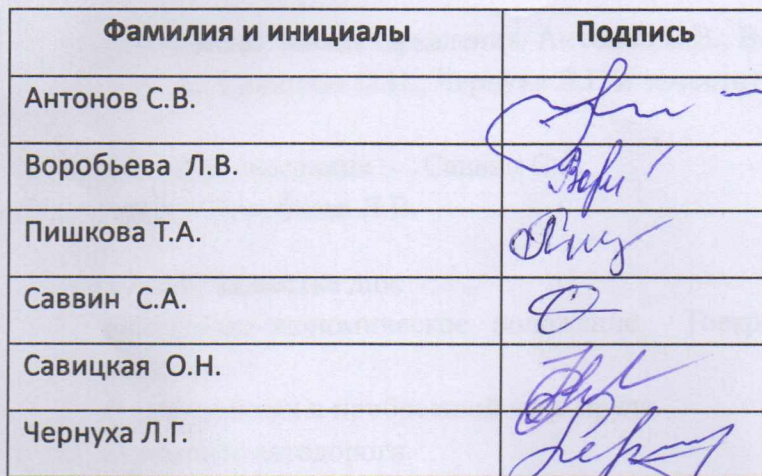 Фамилия и инициалы Подпись
Антонов С.В.
Воробьева Л.В.
Пишкова Т.А.
Саввин С.А.
Савицкая О.Н.
Чернуха Л.Г.